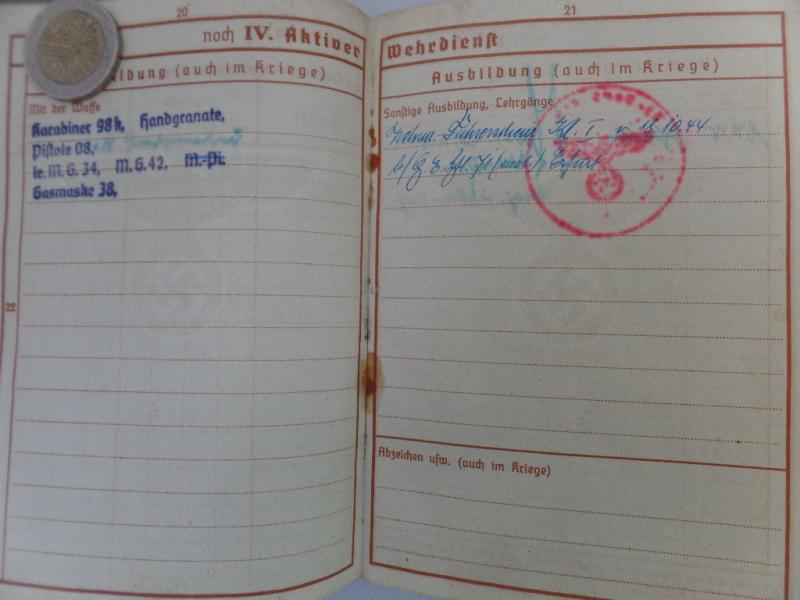 20
noch IV. Aktiver
ildung (auch im Kriege)
Mit der Waffe
Karabiner 98k, Handgranate,
Pistole 08,
le. M.G. 34, M.G. 42, M.-Pi.
Gasmaske 38,
22
21
Wehrdienst
Ausbildung (auch im Kriege)
Sonstige Ausbildung, Lehrgänge
Führerschein Kl. I v. 13.10.44
Erfurt
Abzeichen usw. (auch im Kriege)